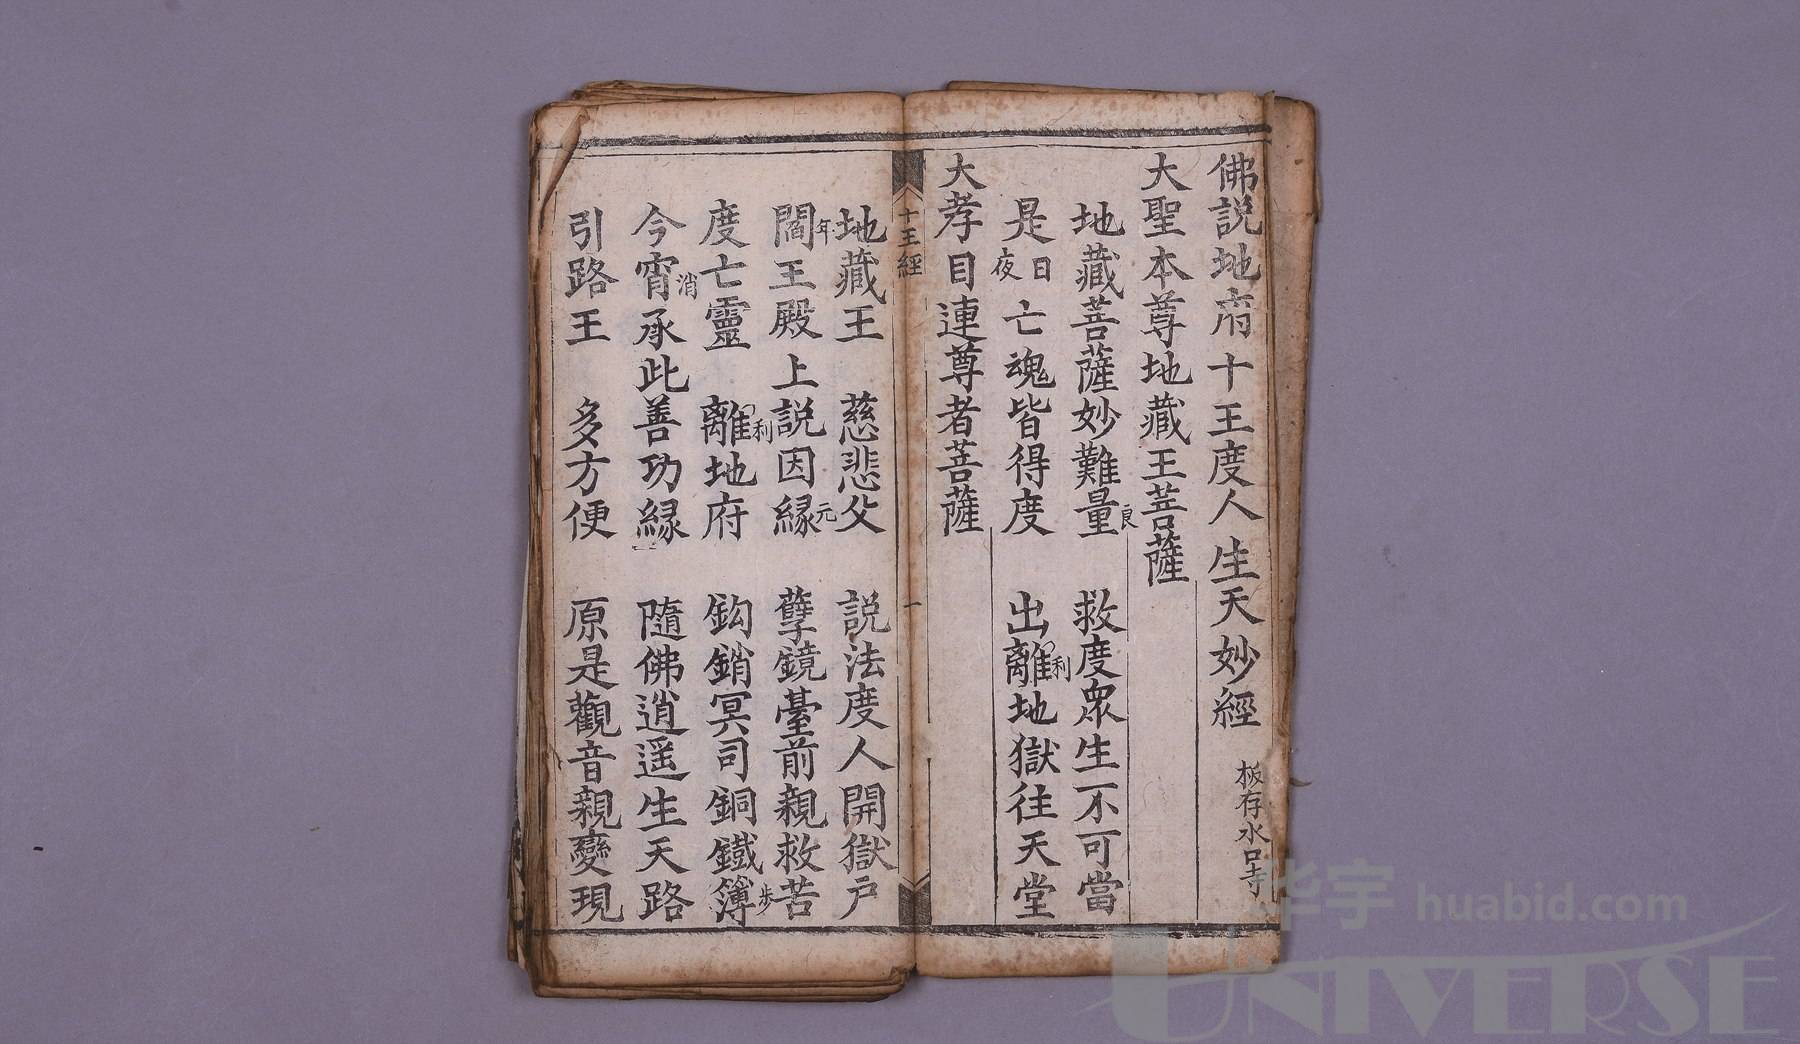 佛説地府十王度人生天妙經 板存水口寺
大聖本尊地藏王菩薩
地藏菩薩妙難量良 救度眾生不可當
是日夜亡魂皆得度 出離利地獄往天堂
大孝目連尊者菩薩
十王經 一
地藏王 慈悲父 説法度人開獄户
閻年王殿上説因縁元 孽鏡臺前親救苦
度亡靈 離利地府 鈎銷冥司銅鐵簿步
今宵消承此善功縁 隨佛逍遥生天路
引路王 多方便 原是觀音親變現
华宇 huabid.com
UNIVERSE